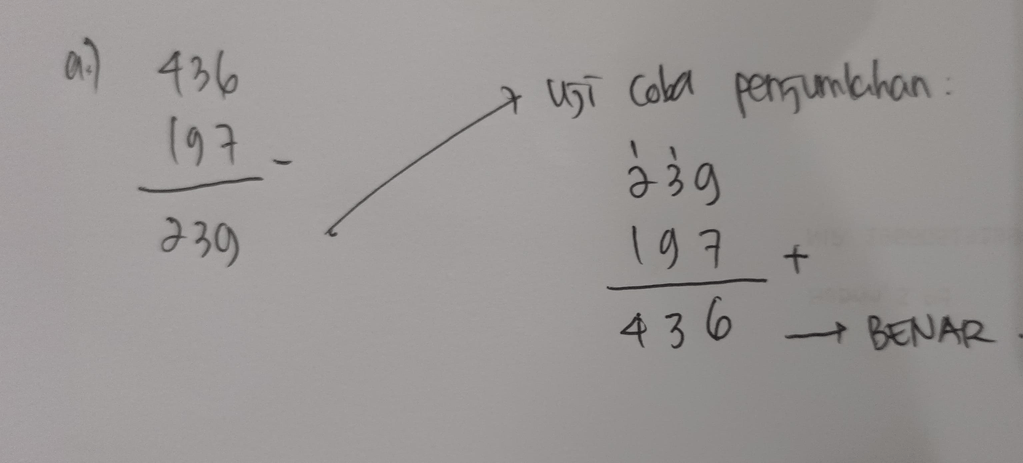 a.) 436
197 -
239
Uji coba penjumlahan :
1 1
239
197 +
436 → BENAR.